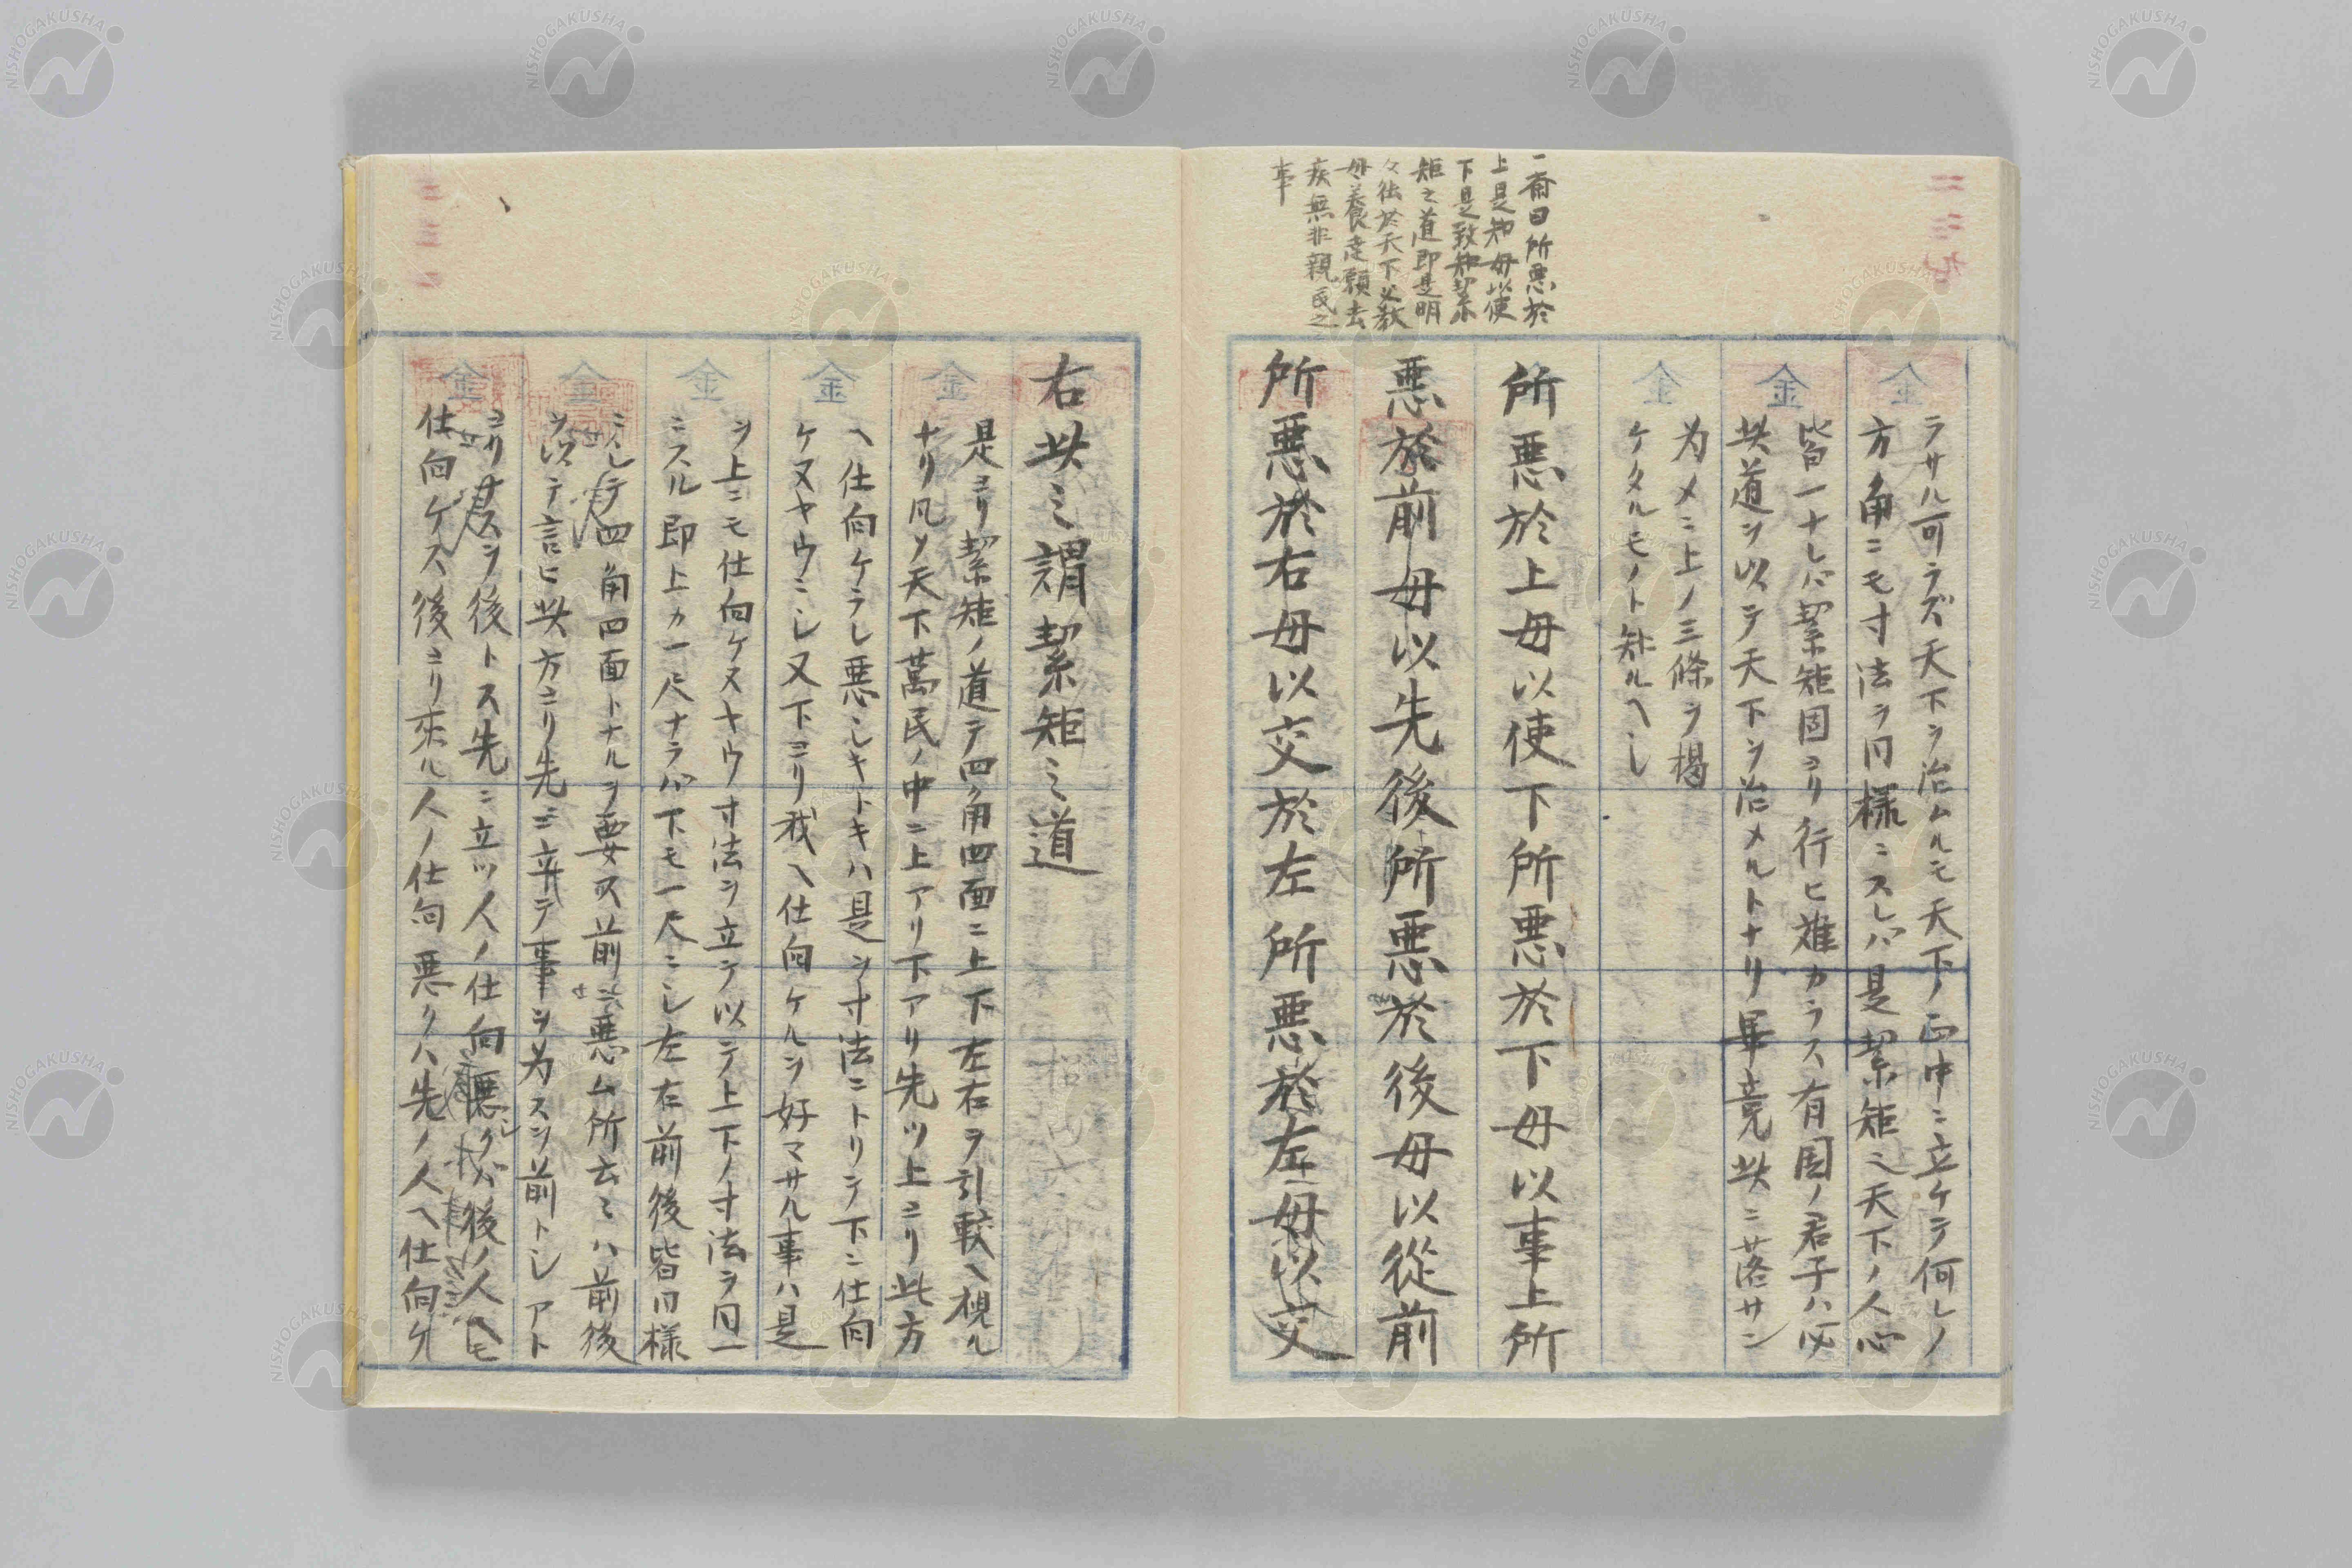 一斎曰所悪於
上是知毋以使
下是致知絜
矩之道即是明
々徳於天下父教
母養走願去
疾無非親民之
事
ラサル可ラズ天下ヲ治ムルモ天下ノ正中ニ立ケテ何レノ
方角ニモ寸法ヲ同様ニスレバ是絜矩之天下ノ人心
皆一ナレバ絜矩固ヨリ行ヒ難カラス有国ノ君子ハ必
此道ヲ以テ天下ヲ治メルトナリ畢竟此ニ落サン
为メニ上ノ三條ヲ揚
ケタルモノト知ルヘシ
所悪於上毋以使下所悪於下毋以事上所
悪於前毋以先後所悪於後毋以從前
所悪於右毋以交於左所悪於左毋以交
右此之謂絜矩之道
是ヨリ絜矩ノ道テ四角四面ニ上下左右ヲ引較ヘ視ル
ナリ凡ソ天下萬民ノ中ニ上アリ下アリ先ツ上ヨリ此方
ヘ仕向ケラレ悪シキトキハ是ヲ寸法ニトリテ下ニ仕向
ケヌヤウニシ又下ヨリ我ヘ仕向ケルヲ好マサル事ハ是
ヲ上ニモ仕向ケヌヤウ寸法ヲ立テ以テ上下ノ寸法ヲ同一
ニスル即上カ一尺ナラバ下モ一尺ニシ左右前後皆同様
ニシテ四角四面トナルヲ要ス前ニ悪ム所云々ハ前後
ヲ以テ言ヒ此方ヨリ先ニ立テ事ヲ为スヲ前トシアト
ヨリスヲ後トス先ニ立ツ人ノ仕向悪クバ後ノ人ヘモ
仕向ケス後ヨリ來ル人ノ仕向悪クハ先ノ人ヘ仕向ケ
NISHOGAKUSHA